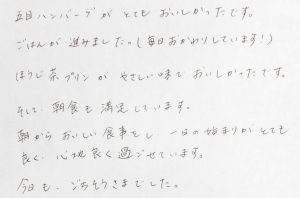 五目ハンバーグが とても おいしかったです。
ごはんが 進みましたっ(毎日おかわりしています!)
ほうじ茶プリンが やさしい味で おいしかったです。
そして、朝食も 満足しています。
朝から おいしい 食事をし、一日の始まりが とても
良く、心地良く 過ごせています。
今日も、ごちそうさまでした。